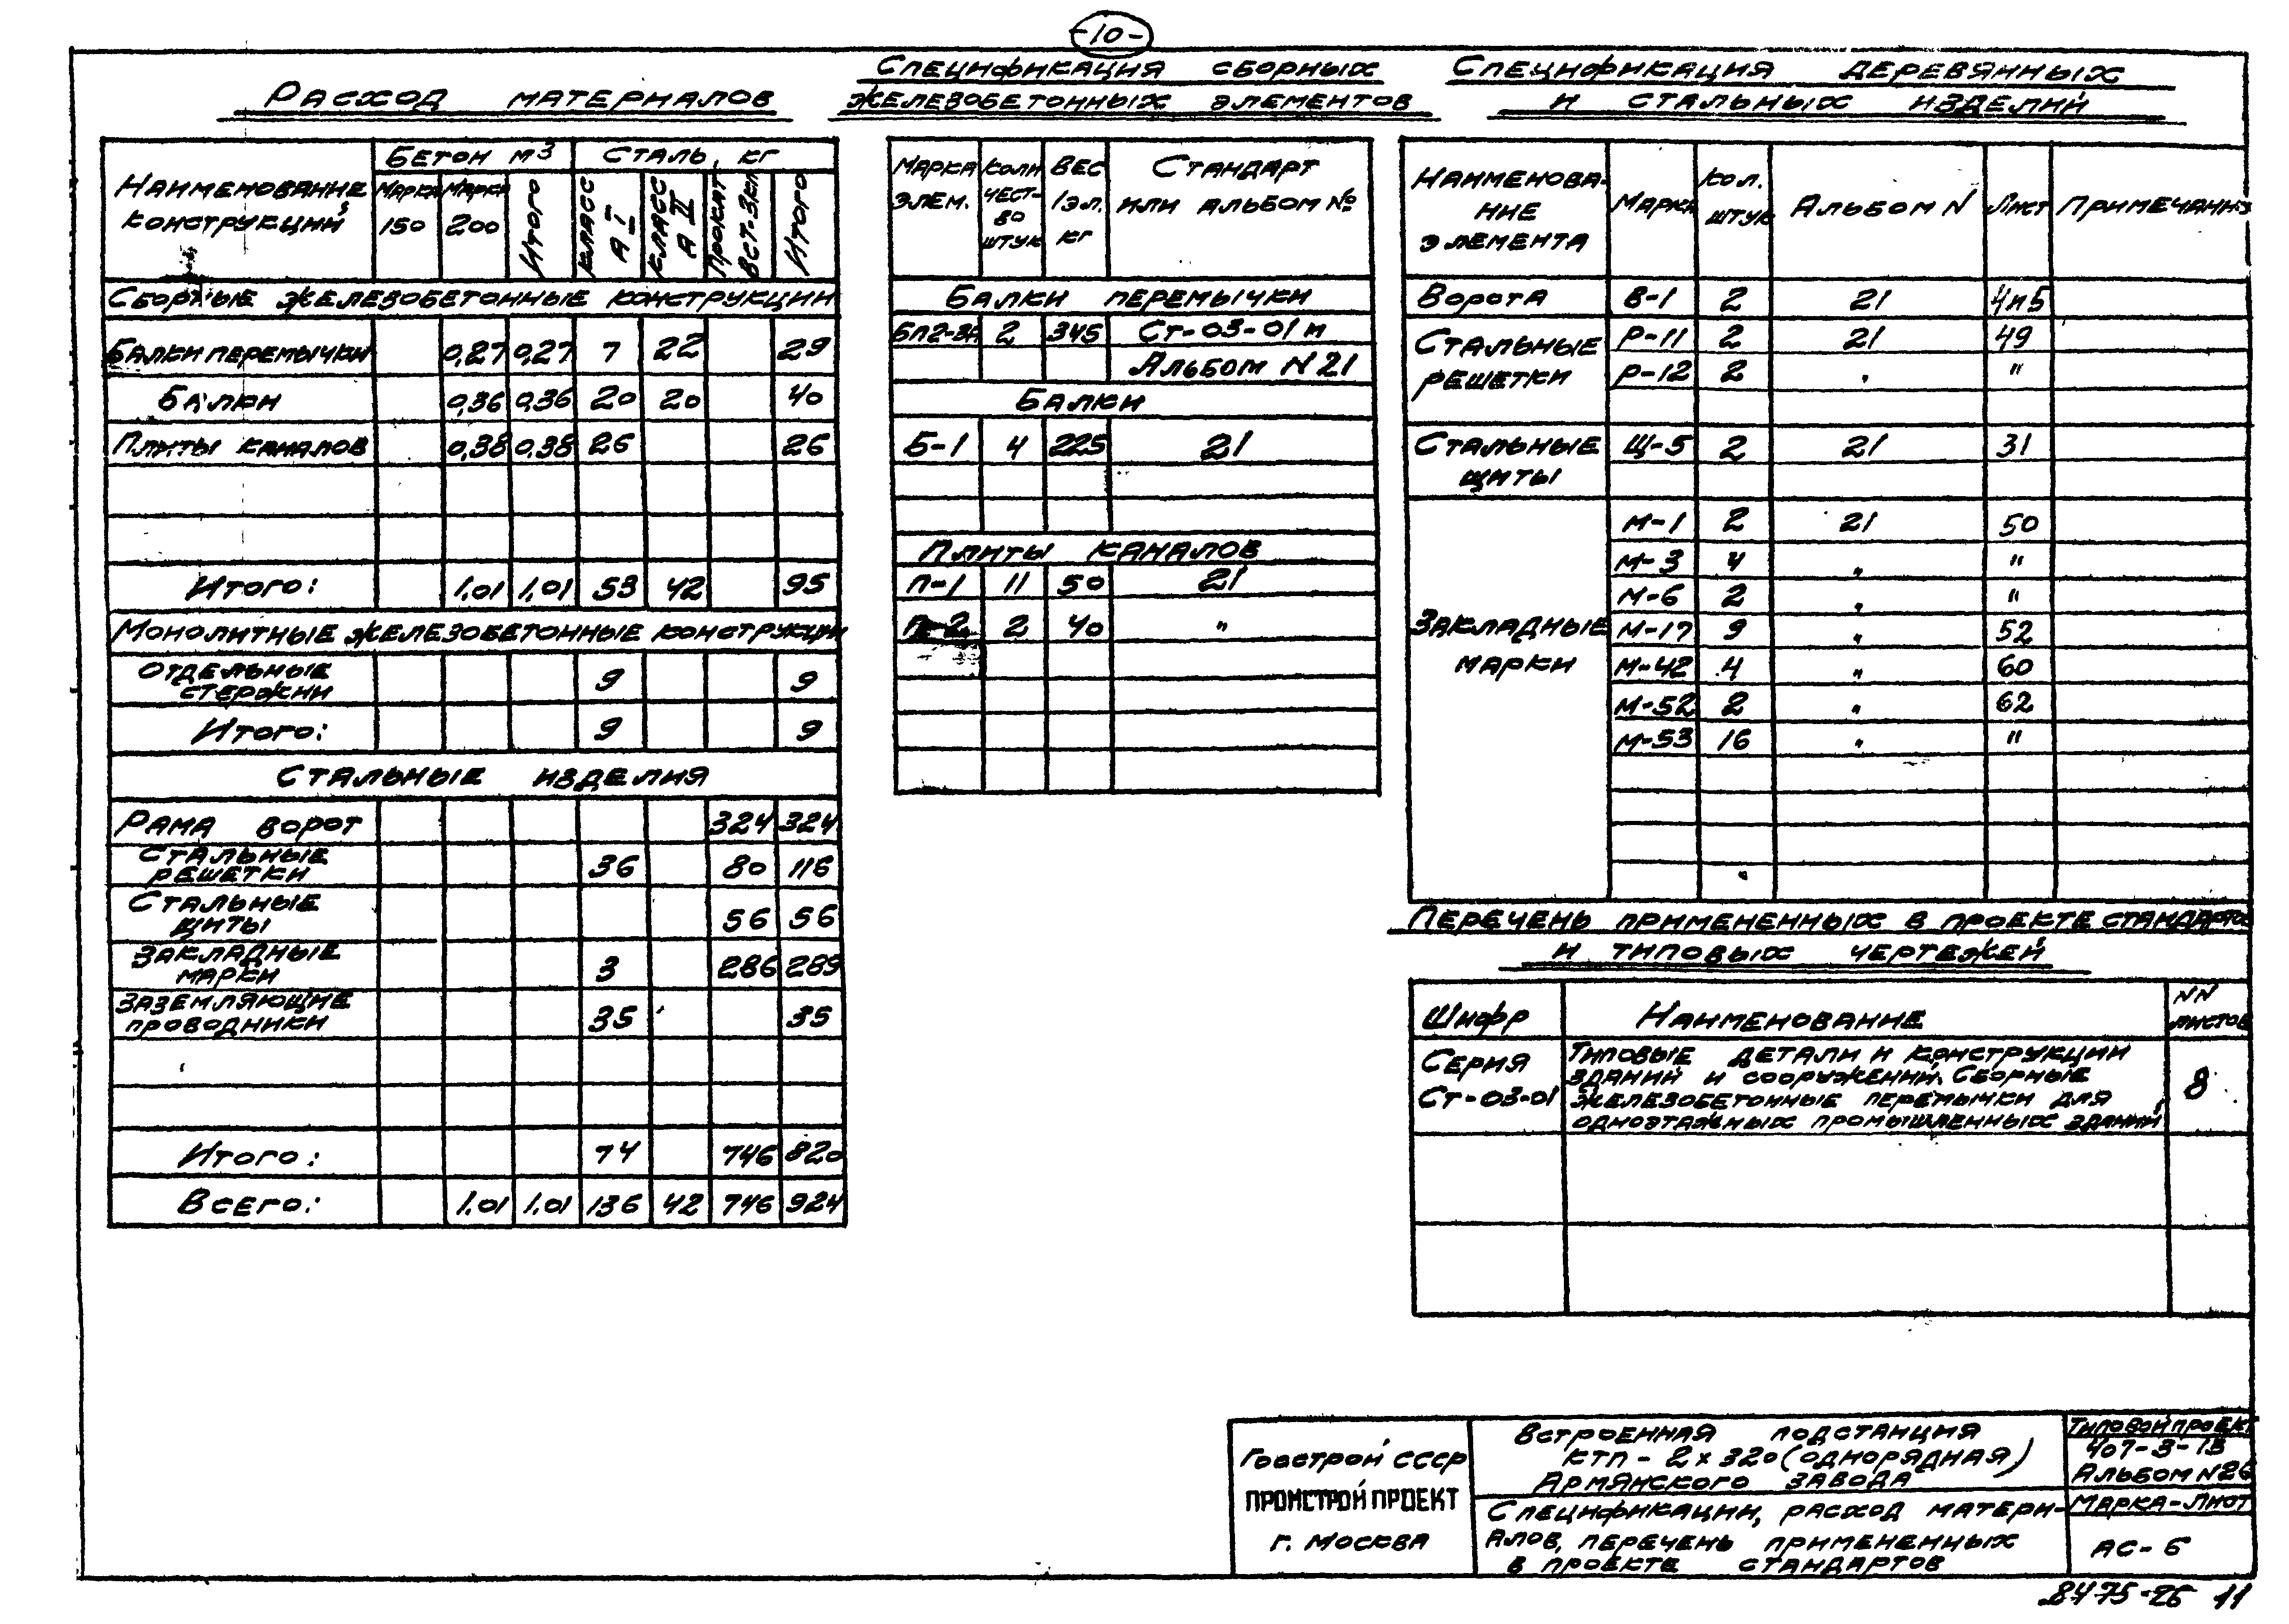 -10-
Расход материалов
Наименование конструкций | Бетон м3 | Сталь, кг
Марка 150 | Марка 200 | Итого | Класс А I | Класс А II | Прокат Вст-3кп | Итого
Сборные железобетонные конструкции
Балки перемычки 0,27 0,27 7 22 29
Балки 0,36 0,36 20 20 40
Плиты каналов 0,38 0,38 26 26
Итого: 1,01 1,01 53 42 95
Монолитные железобетонные конструкции
Отдельные стержни 9 9
Итого: 9 9
Стальные изделия
Рама ворот 324 324
Стальные решетки 36 80 116
Стальные щиты 56 56
Закладные марки 3 286 289
Заземляющие проводники 35 35
Итого: 74 746 820
Всего: 1,01 1,01 136 42 746 924
Спецификация сборных
железобетонных элементов
Марка элем. | Коли чест-во штук | Вес 1 эл. кг | Стандарт или альбом №
Балки перемычки
БП2-3А 2 345 Ст-03-01 и
Альбом N 21
Балки
Б-1 4 225 21
Плиты каналов
П-1 11 50 21
П-2 2 40 "
Спецификация деревянных
и стальных изделий
Наименова-ние элемента | Марка | Кол. штук | Альбом N | Лист | Примечание
Ворота В-1 2 21 4и5
Стальные решетки Р-11 2 21 49
Р-12 2 " "
Стальные щиты Щ-5 2 21 31
Закладные марки М-1 2 21 50
М-3 4 " "
М-6 2 " "
М-17 9 " 52
М-42 4 " 60
М-52 2 " 62
М-53 16 " "
Перечень примененных в проекте стандартов
и типовых чертежей
Шифр | Наименование | NN листов
Серия Ст-03-01 | Типовые детали и конструкции
зданий и сооружений. Сборные
железобетонные перемычки для
одноэтажных промышленных зданий | 8
Госстрой СССР
ПРОМСТРОЙПРОЕКТ
г. Москва
Встроенная подстанция
КТП - 2×320 (однорядная)
Армянского завода
Спецификации, расход матери-
алов, перечень примененных
в проекте стандартов
Типовой проект
407-3-13
Альбом N 26
Марка-лист
АС-6
8475-26 11